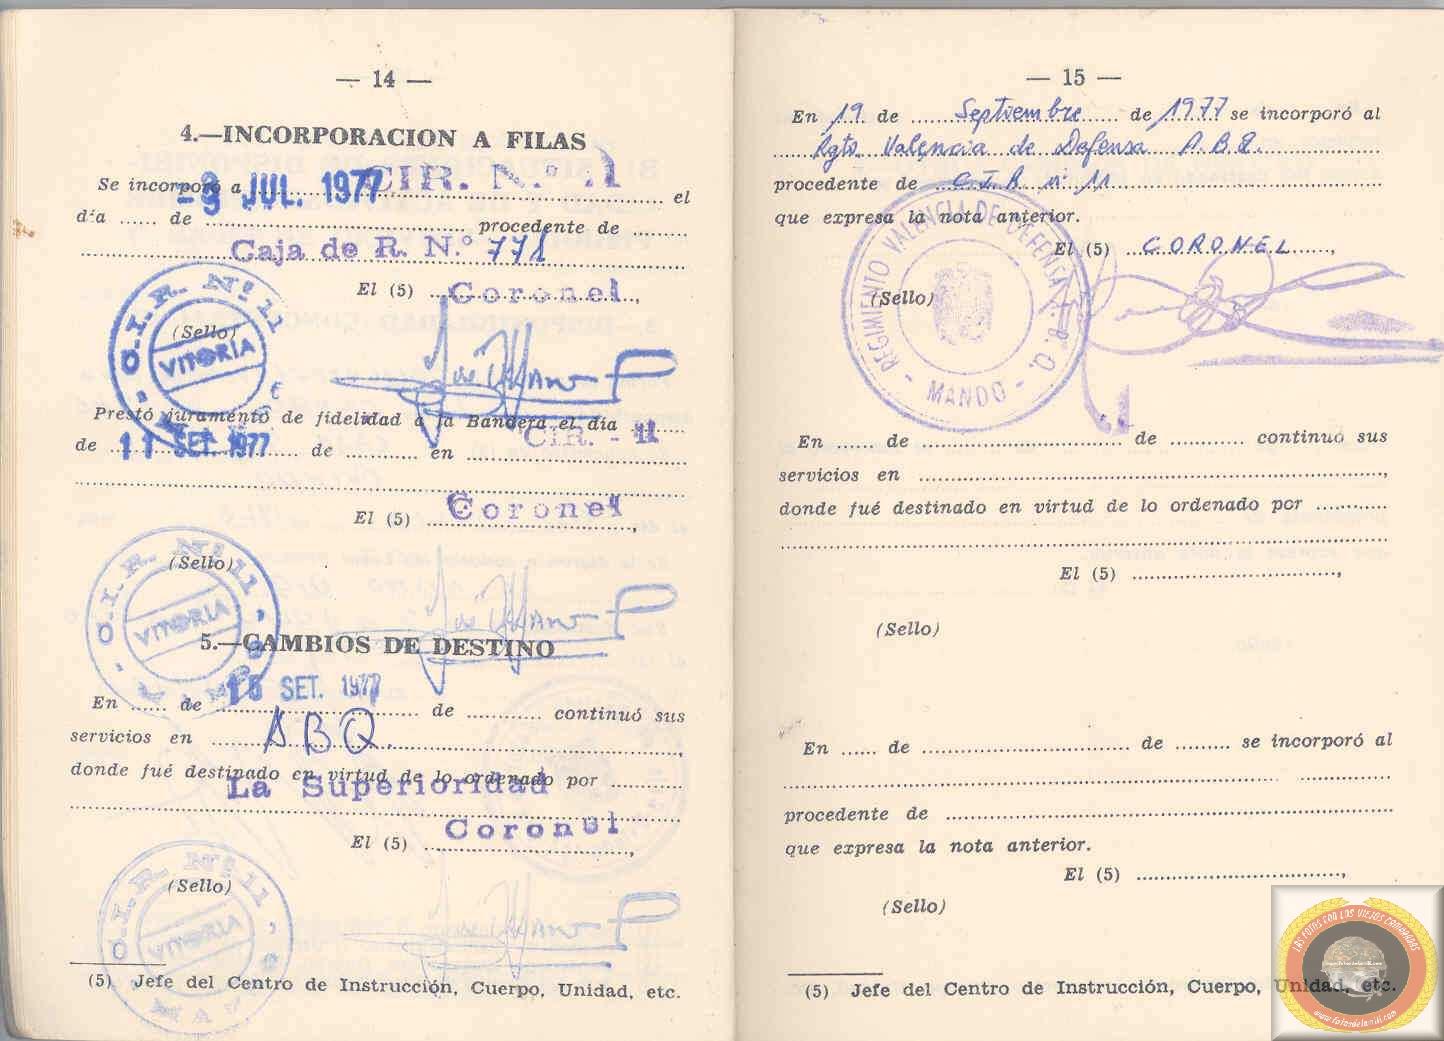 — 14 —
4.—INCORPORACION A FILAS
Se incorporó a CIR. N.º 11 el
-3 JUL. 1977
día ...... de .............................. procedente de
Caja de R. N.º 771
El (5) Coronel,
C.I.R. Nº 11
(Sello)
VITORIA
Prestó juramento de fidelidad a la Bandera el día
de 11 SET. 1977 de ........... en CIR. - 11
El (5) Coronel,
C.I.R. Nº 11
(Sello)
VITORIA
5.—CAMBIOS DE DESTINO
En ...... de 16 SET. 1977 de ........... continuó sus
servicios en ABQ.,
donde fué destinado en virtud de lo ordenado por
La Superioridad
El (5) Coronel,
C.I.R. Nº 11
(Sello)
VITORIA
(5) Jefe del Centro de Instrucción, Cuerpo, Unidad, etc.
— 15 —
En 19 de Septiembre de 1977 se incorporó al
Rgto. Valencia de Defensa A.B.Q.
procedente de C.I.R nº 11
que expresa la nota anterior.
El (5) CORONEL,
REGIMIENTO VALENCIA DE DEFENSA A. B. Q.
- MANDO -
(Sello)
En ...... de .............................. de ........... continuó sus
servicios en ..............................,
donde fué destinado en virtud de lo ordenado por ...........
El (5) ..............................,
(Sello)
En ...... de .............................. de ......... se incorporó al
procedente de ..............................
que expresa la nota anterior.
El (5) ..............................,
(Sello)
(5) Jefe del Centro de Instrucción, Cuerpo, Unidad, etc.
LAS FOTOS CON LOS VIEJOS CAMARADAS
www.fotosdelamili.com